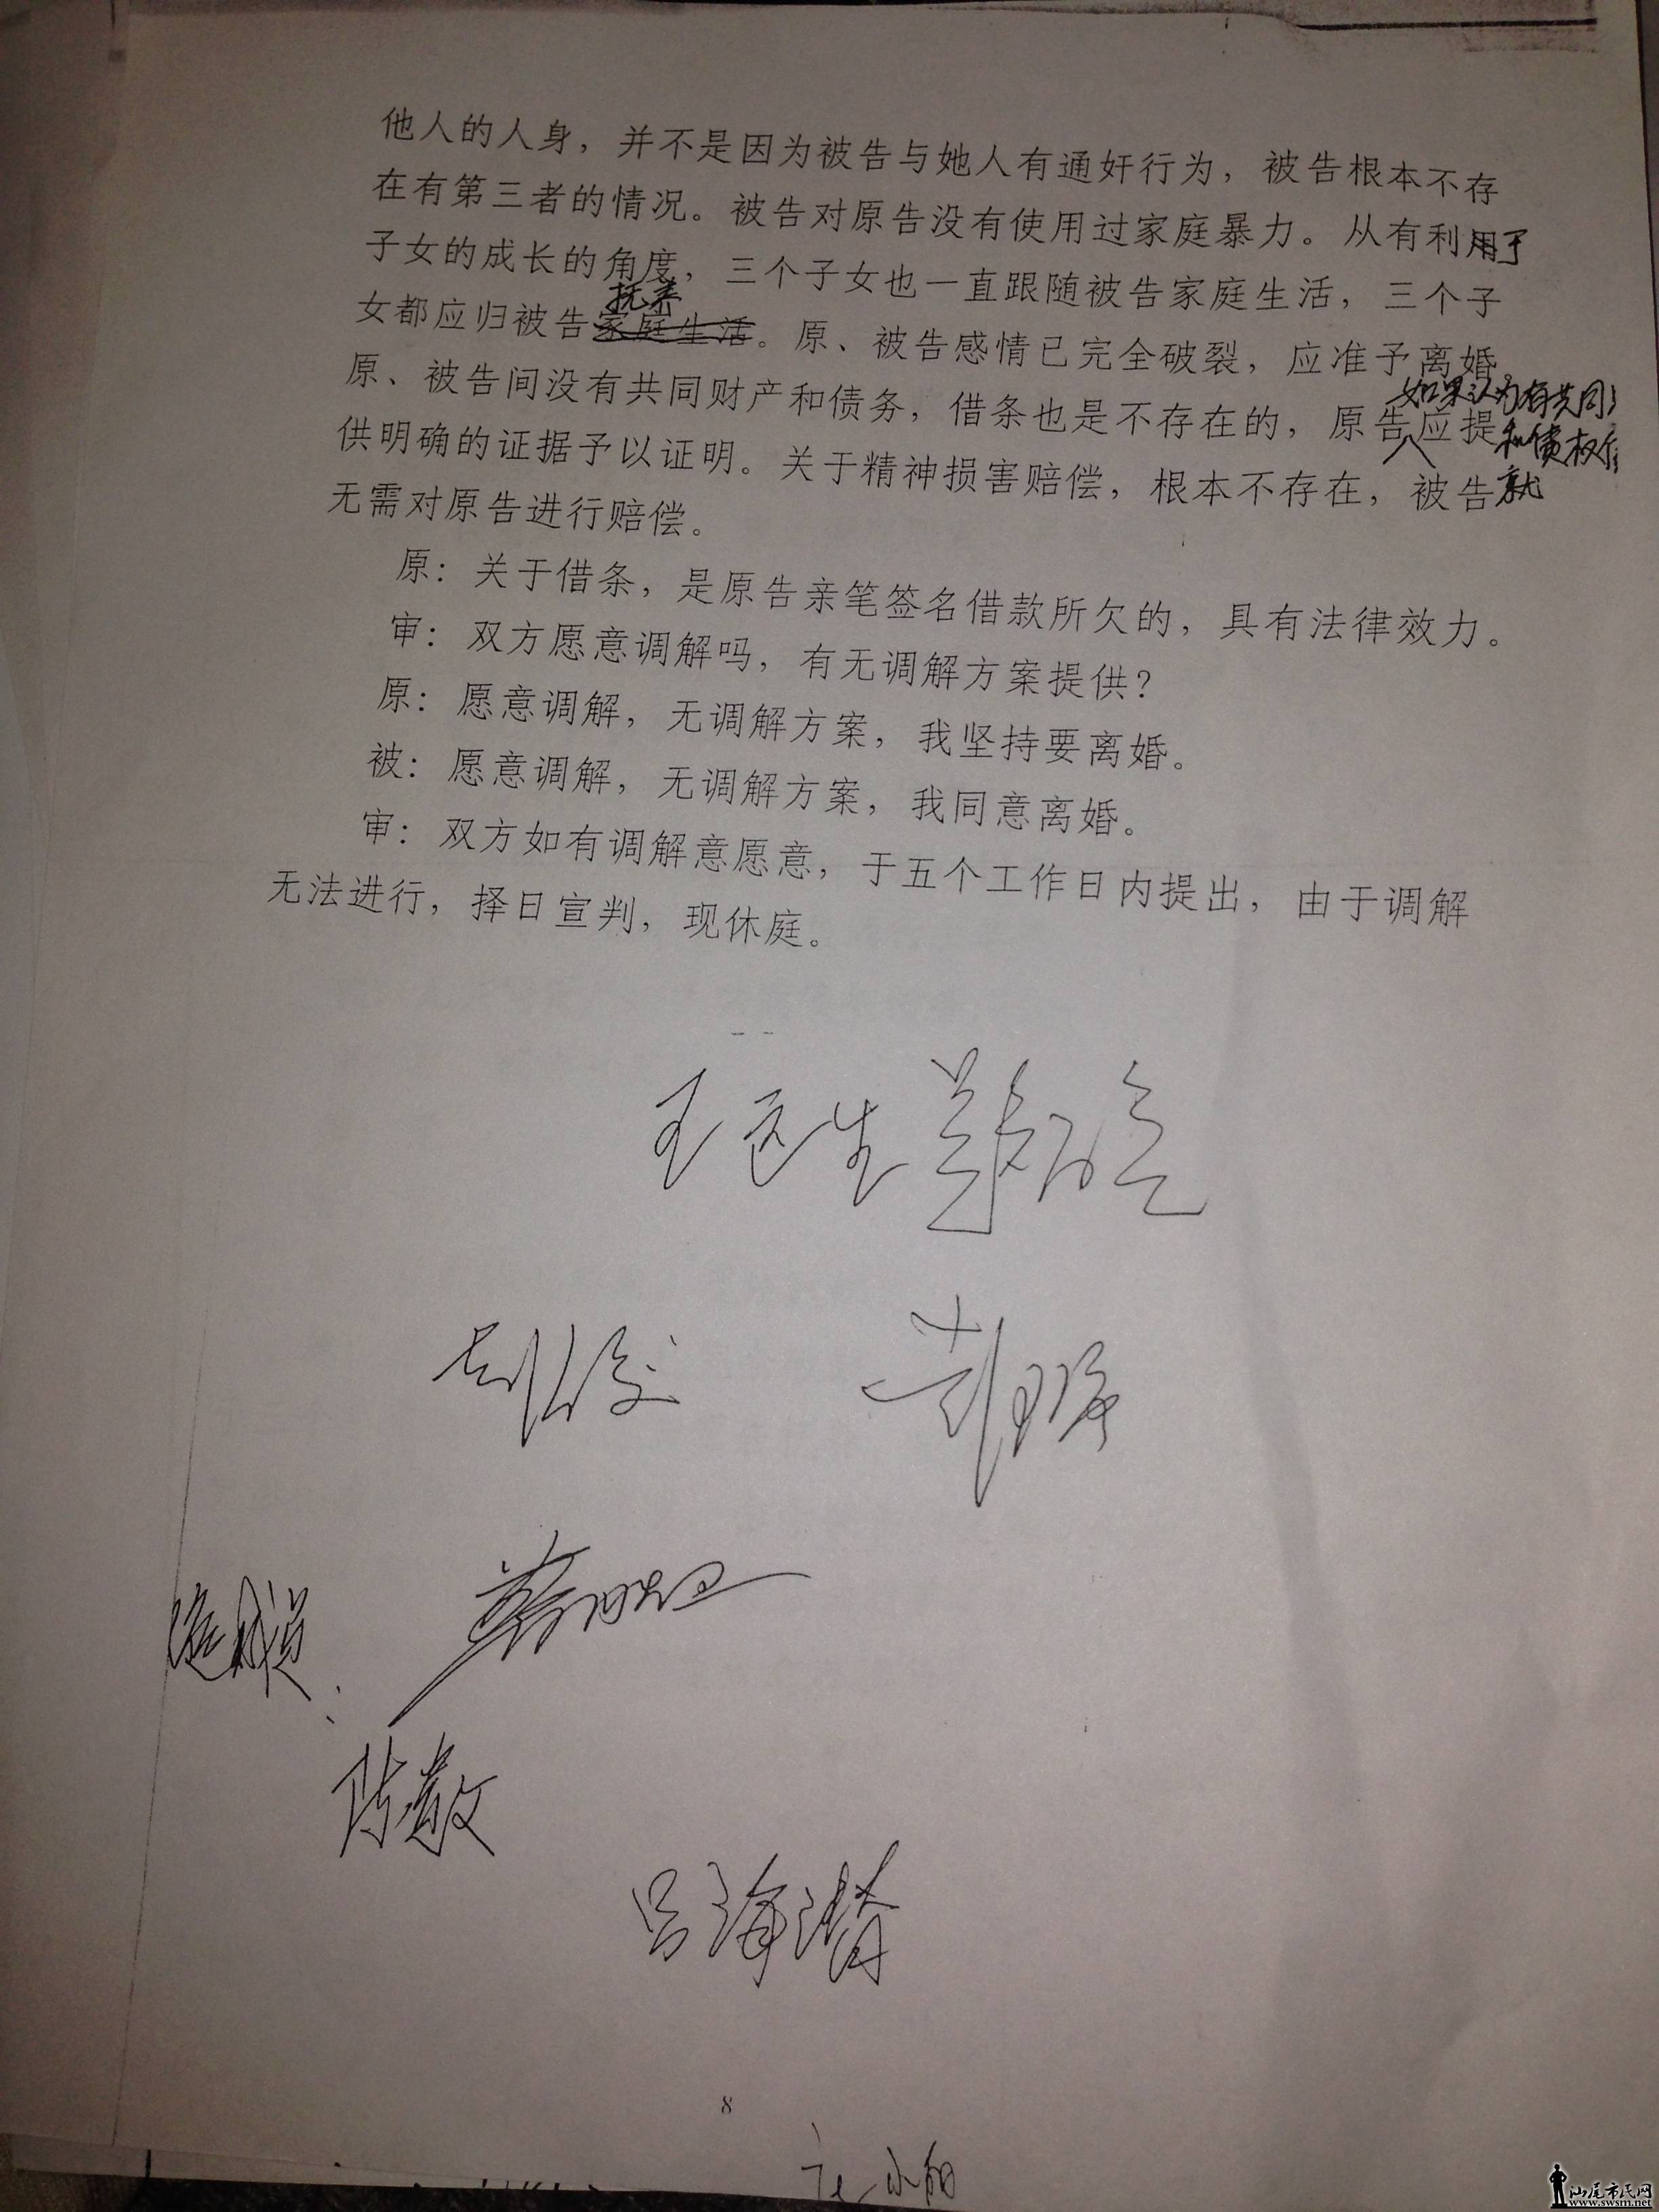 他人的人身，并不是因为被告与她人有通奸行为，被告根本不存
在有第三者的情况。被告对原告没有使用过家庭暴力。从有利用于
子女的成长的角度，三个子女也一直跟随被告家庭生活，三个子
抚养
女都应归被告家庭生活。原、被告感情已完全破裂，应准予离婚
如果认为有共同
原、被告间没有共同财产和债务，借条也是不存在的，原告应提
和债权
供明确的证据予以证明。关于精神损害赔偿，根本不存在，被告就
无需对原告进行赔偿。
原：关于借条，是原告亲笔签名借款所欠的，具有法律效力。
审：双方愿意调解吗，有无调解方案提供？
原：愿意调解，无调解方案，我坚持要离婚。
被：愿意调解，无调解方案，我同意离婚。
审：双方如有调解意愿意，于五个工作日内提出，由于调解
无法进行，择日宣判，现休庭。
8
汕尾市民网
www.swsm.net